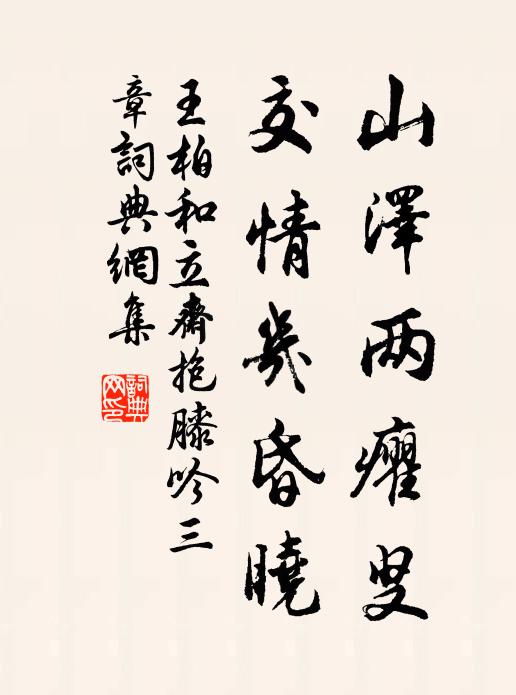 山澤两癯叟
交情幾昏曉
王柏和立齋抱膝吟三
章詞典網集
詞典
网印